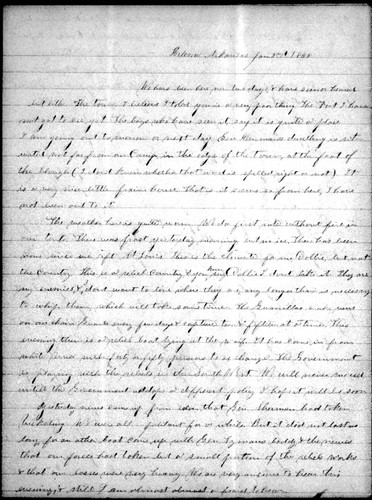 Helena Arkansas Jan 2nd 1863
We have been here one day & have seen or learned
but little. The town I believe I told you is a very poor thing. The Fort I have
not got to see yet. The boys who have seen it say it is quite a place
I am going out to morrow or next day. Gen Hinmans dwelling is sit
uated not far from our Camp in the edge of the town, at the foot of
the Height (I dont know whether that word is spelled right or not). It
is a very nice little frame house that is it seems so from here, I have
not been out to it.
The weather here is quite warm. We do first rate without fire in
our tents. There was frost yesterday morning but no ice. There has been
none since we left St Louis. This is the climate for me Dollie, but not
the Country. This is a rebel Country & you know Dollie I dont like it. They are
my enemies & I dont want to live where they are any longer than is necessary
to whip them, which will take some time. The Guerrillas make runs
on our chain Guards every few days & capture ten or fifteen at a time. This
evening there is a rebel boat lying at the wharf. It has come in from
with some of our persons to exchange. The Government
is playing with the rebels in the South West. We will never succeed
until the Government adopts a different policy. I hope it will do so soon
Yesterday news came up from below that Gen Sherman had taken
Vicksburg. We were all jubilant for a while. But it did not last as
long for another boat came up with Gen Gormans body & the news
that our force had taken but a small portion of the rebels works
& that our losses were very heavy. We are very anxious to hear this
evening & still I am almost afraid to hear.